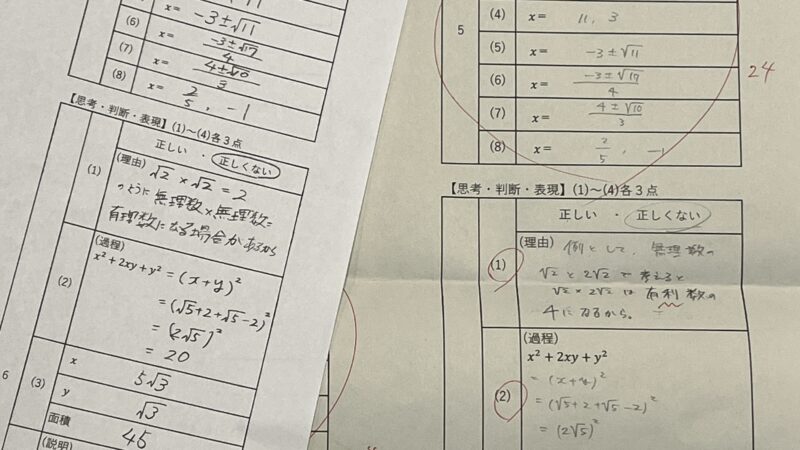 x= -3±√11
(6) x= -3±√17/4
(7) x= 4±√10/3
(8) x= 2/5 , -1
【思考・判断・表現】(1)〜(4)各3点
正しい ・ 正しくない
(1) (理由) √2 × √2 = 2
のように無理数×無理数=
有理数になる場合があるから
(2) (過程)
x²+2xy+y² = (x+y)²
= (√5+2+√5-2)²
= (2√5)²
= 20
6 (3) x 5√3
y √3
面積 45
(説明)
5 (4) x= 11, 3
(5) x= -3±√11
(6) x= -3±√17/4
(7) x= 4±√10/3
(8) x= 2/5 , -1
24
【思考・判断・表現】(1)〜(4)各3点
正しい ・ 正しくない
(1) (理由) 例として、無理数の
√2と2√2で考えると
√2×2√2は有利数の
4になるから。
(2) (過程)
x²+2xy+y²
= (x+y)²
= (√5+2+√5-2)²
= (2√5)²